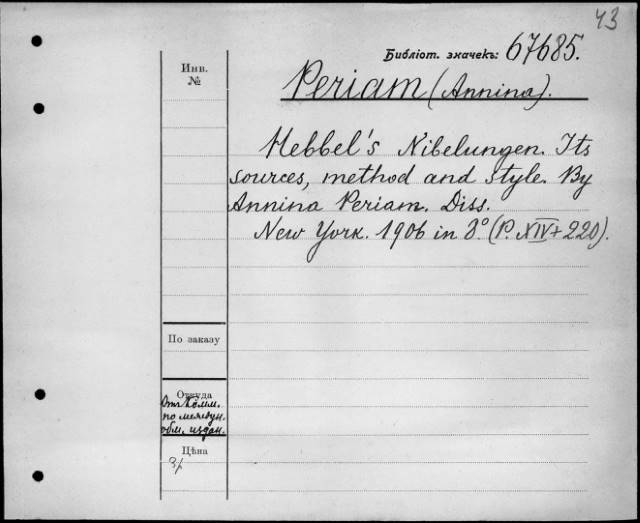 43
Библіот. значекъ: 67685.
Инв.
№
Periam (Annina).
Hebbel's Nibelungen. Its
sources, method and style. By
Annina Periam. Diss.
New York. 1906 in 8° (P. XIV+220).
По заказу
Откуда
Отъ Комм.
по междун.
обм. издан.
Цѣна